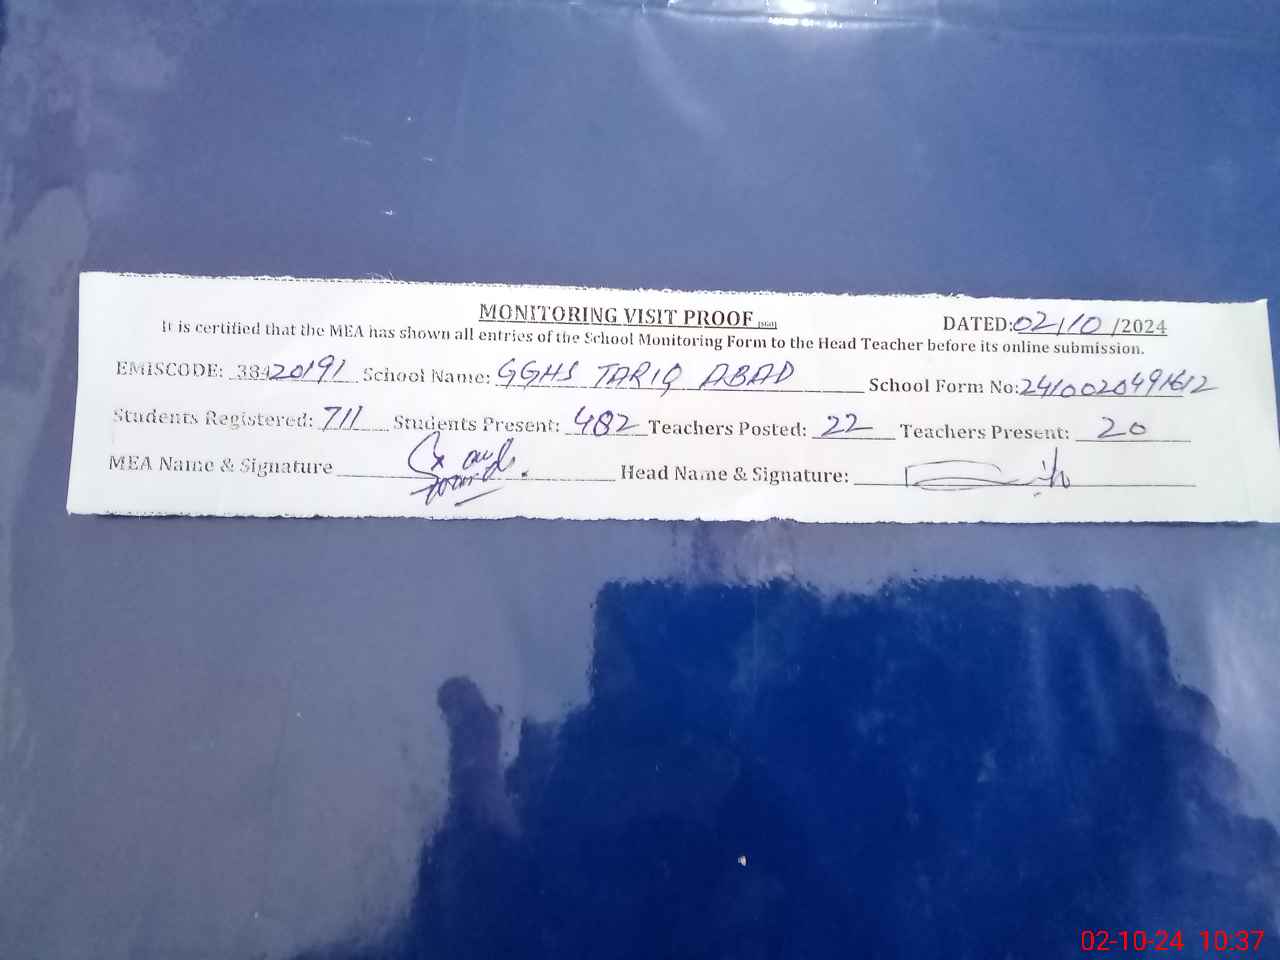 MONITORING VISIT PROOF
DATED: 02/10/2024
It is certified that the MEA has shown all entries of the School Monitoring Form to the Head Teacher before its online submission.
EMISCODE: 38420191 School Name: GGHS TARIQ ABAD School Form No: 2410020491612
Students Registered: 711 Students Present: 482 Teachers Posted: 22 Teachers Present: 20
MEA Name & Signature Head Name & Signature:
02-10-24 10:37